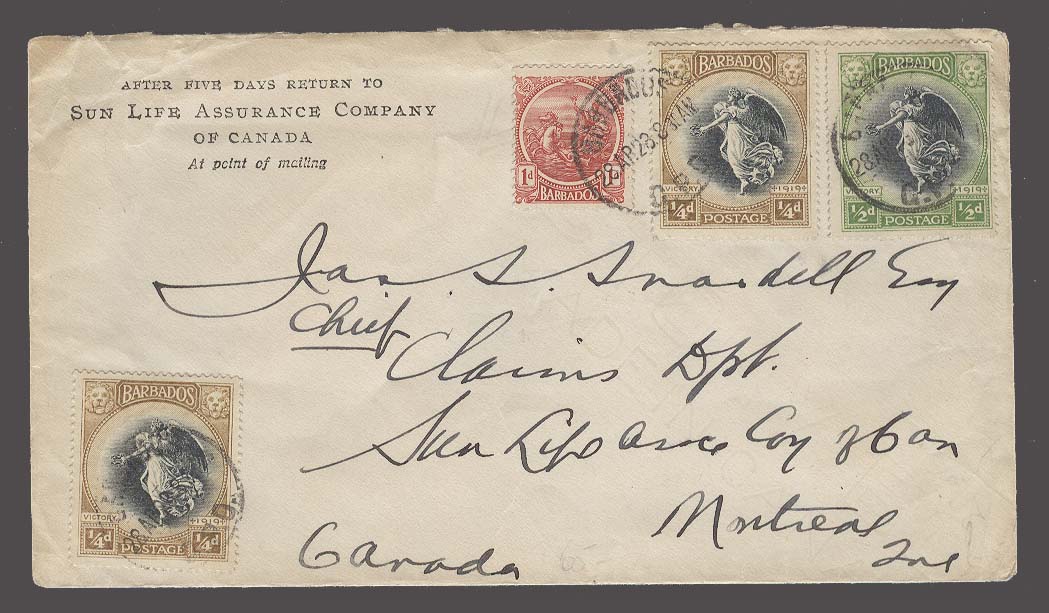 AFTER FIVE DAYS RETURN TO
SUN LIFE ASSURANCE COMPANY
OF CANADA
At point of mailing
BARBADOS
1d
BARBADOS
VICTORY 1919
1/4d POSTAGE 1/4d
BARBADOS
VICTORY 1919
1/2d POSTAGE 1/2d
28 AP 28
Jas. S. Esq
Chief
Claims Dpt.
Sun Life Assce Coy of Can
Montreal
Canada
BARBADOS
VICTORY 1919
1/4d POSTAGE 1/4d
65-